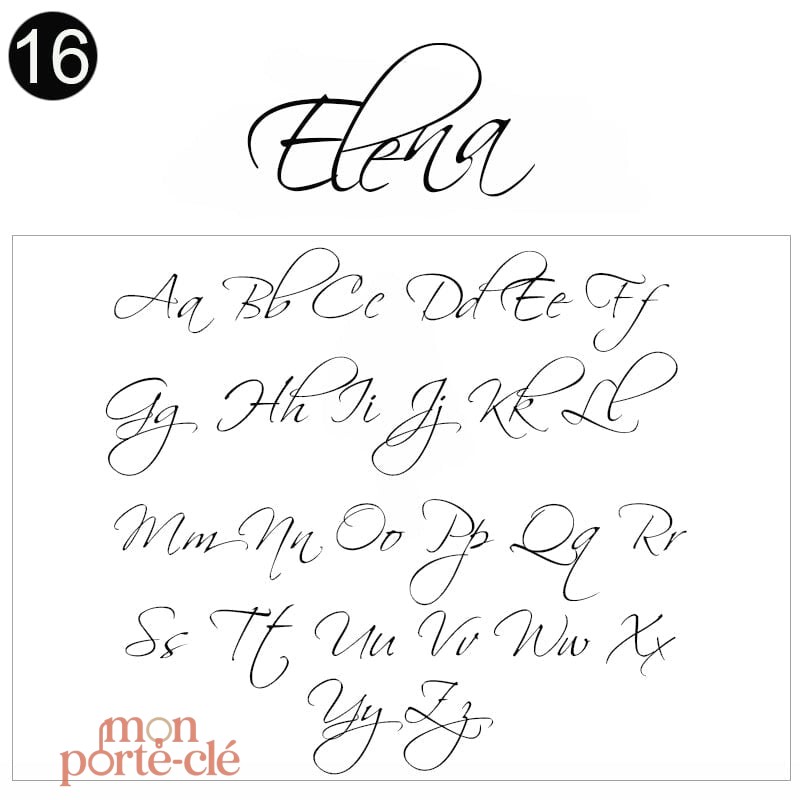 16
Elena
Aa Bb Cc Dd Ee Ff
Gg Hh Ii Jj Kk Ll
Mm Nn Oo Pp Qq Rr
Ss Tt Uu Vv Ww Xx
Yy Zz
mon
porte-clé